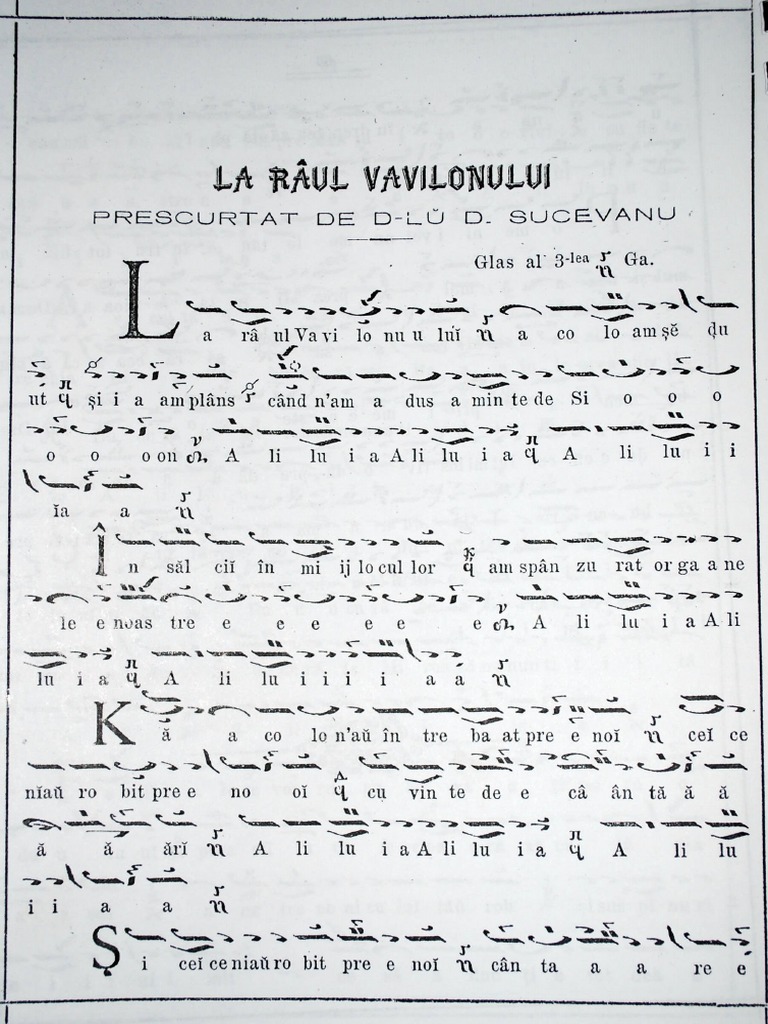 LA RÂUL VAVILONULUI
PRESCURTAT DE D-LŬ D. SUCEVANU
Glas al 3-lea Ga.
L a râ ul Va vi lo nu u luĭ a co lo am șĕ du
ut și i a am plâns când n'am a dus a min te de Si o o o
o o o on A li lu i a A li lu i a A li lu i i
ĭa a
Î n săl ciĭ în mi ij lo cul lor am spân zu rat or ga a ne
le e noas tre e e e e e e A li lu i a A li
lu i a A li lu i i i i a a
K ă a co lo n'aŭ în tre ba at pre e noĭ ceĭ ce
nĭaŭ ro bit pre e no oĭ cu vin te de e câ ân tă ă ă
ă ă ărĭ A li lu i a A li lu i a A li lu
i i a a
Ș i ceĭ ce niaŭ ro bit pre e noĭ cân ta a a re e